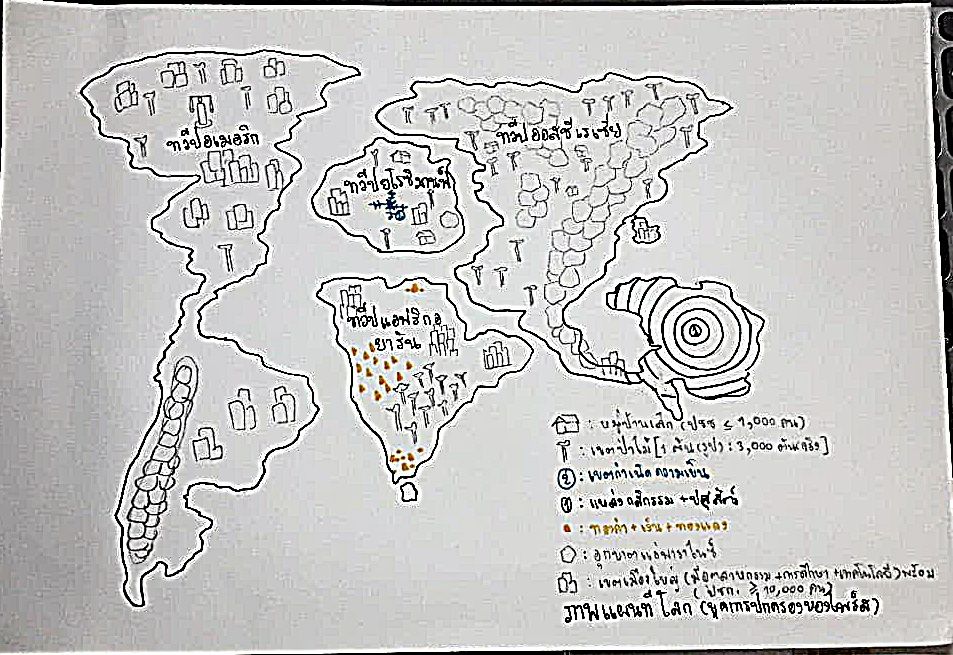 ทวีปอเมอริก
ทวีปออสซีเรเซีย
ทวีปยูโรซิแานฟ์
ทวีปแอฟริกอ
ยารัน
①
②
: หมู่บ้านเล็ก (ปชช ≤ 1,000 คน)
: เขตป่าไม้ [1 ต้น(รูป) : 3,000 ต้นจริง]
② : เขตกำเนิดความเย็น
① : แหล่งกสิกรรม + ปศุสัตว์
: ทองคำ + เงิน + ทองแดง
: อุกกาบาต
: เขตเมืองใหญ่ (มีอุตสาหกรรม + การศึกษา + เทคโนโลยี) พร้อม
(ปชก. ≥ 10,000 คน)
ภาพแผนที่โลก (ยุคการปกครองของ